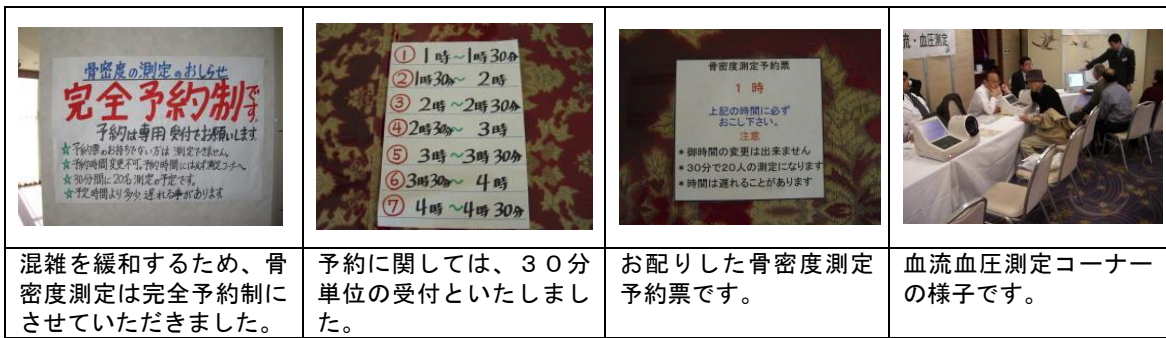 骨密度の測定のおしらせ
完全予約制です。
予約は専用受付でお願いします
☆予約票のお持ちでない方は測定できません。
☆予約時間変更不可。予約時間には必ず測定コーナーへ。
☆30分間に20名測定の予定です。
☆予定時間より多少遅れる事があります
① 1時～1時30分
②1時30分～ 2時
③ 2時～2時30分
④2時30分～ 3時
⑤ 3時～3時30分
⑥3時30分～ 4時
⑦ 4時～4時30分
骨密度測定予約票
1 時
上記の時間に必ず
おこし下さい。
注意
＊御時間の変更は出来ません
＊30分で20人の測定になります
＊時間は遅れることがあります
流・血圧測定
混雑を緩和するため、骨
密度測定は完全予約制に
させていただきました。
予約に関しては、３０分
単位の受付といたしまし
た。
お配りした骨密度測定
予約票です。
血流血圧測定コーナー
の様子です。